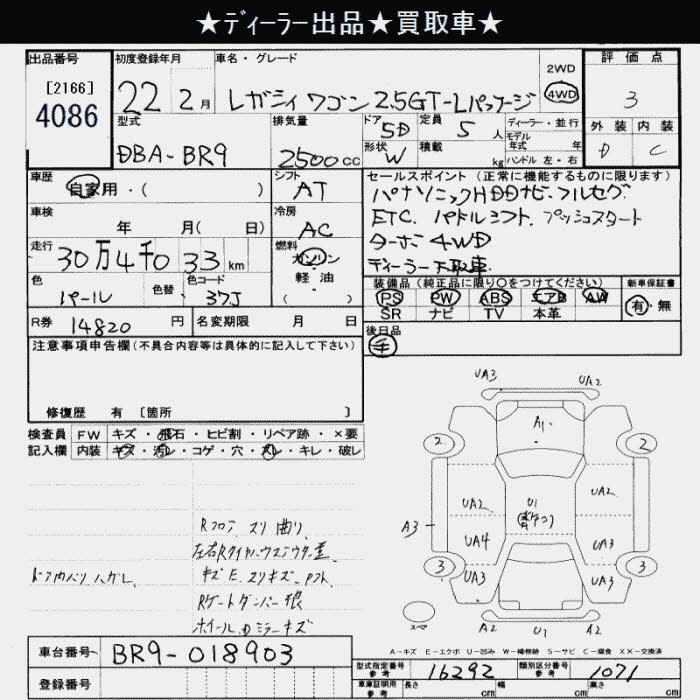 ★ディーラー出品★買取車★
出品番号 初度登録年月 車名・グレード 2WD 評価点
[2166]
4086
22年 2月 レガシィワゴン 2.5GT-Lパッケージ 4WD 3
型式 排気量 ドア 5D 定員 5人 ディーラー・並行 外装 内装
モデル年式 年
DBA-BR9 2500cc 形状 W 積載 kg ハンドル 左・右 D C
車歴 自家用・( ) シフト AT セールスポイント (正常に機能するものに限ります)
パナソニックHDDナビ フルセグ
車検 年 月( 日) 冷房 AC ETC. パドルシフト. プッシュスタート
ターボ 4WD
走行 30万4千033km 燃料 ガソリン 軽油 ( )
ディーラー下取車
色 パール 色替 色コード 37J 装備品(純正品に限り○をつけてください) 新車保証書
PS PW ABS エアB AW 有・無
SR ナビ TV 本革
R券 14820円 名変期限 月 日 後日品
手
注意事項申告欄(不具合内容等は具体的に記入して下さい)
修復歴 有 [箇所 ]
検査員 FW キズ・飛石・ヒビ割・リペア跡・×要
記入欄 内装 キズ・汚れ・コゲ・穴・スレ・キレ・破レ
Rフロア スリ 曲り
キズ E. スリキズ
Rゲートダンパー
ホイール ミラーキズ
UA3 UA2
A1
2 2
UA2 U1 UA2
A3 UA4 UA3
3 UA3 UA3 3
スペア A2 U1 A2
A-キズ E-エクボ U-凹み W-補修跡 S-サビ C-腐食 XX-交換済
車台番号 BR9-018903 型式指定番号 参考 16292 類別区分番号 参考 1071
登録番号 車庫証明用 参考 長さ cm 幅 cm 高さ cm